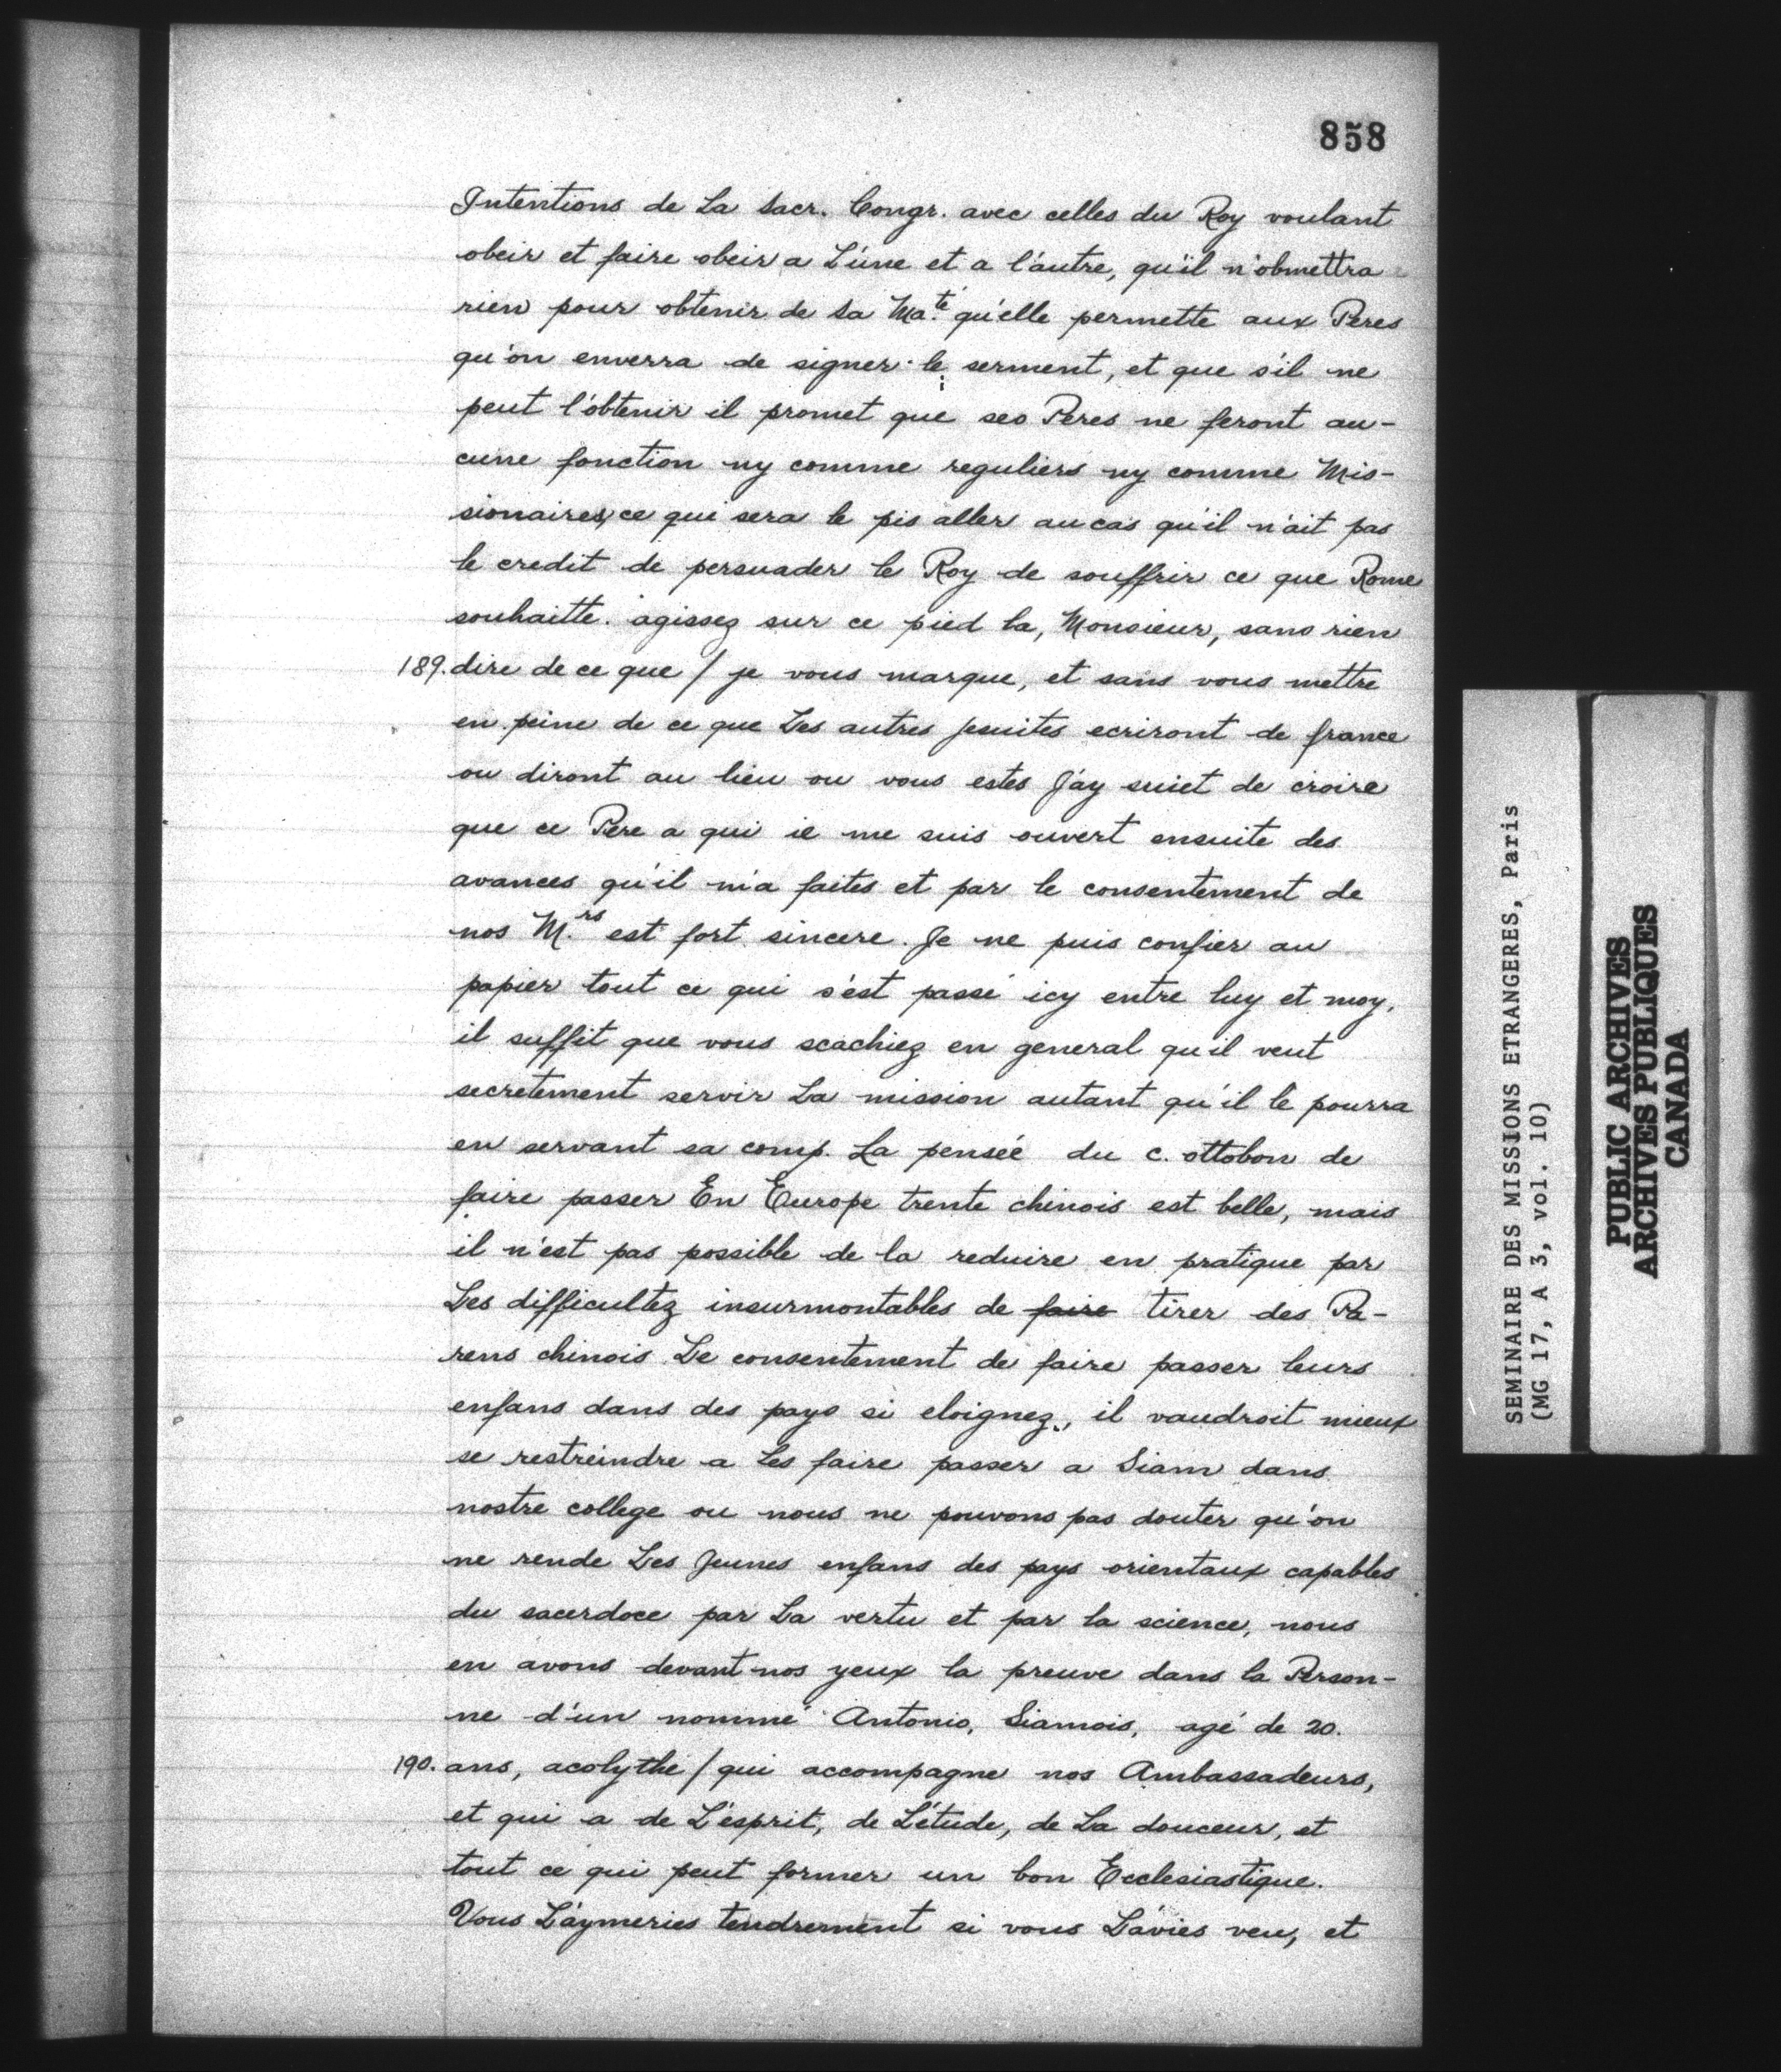 858
Intentions de La Sacr. Congr. avec celles du Roy voulant
obeir et faire obeir a L'úne et a l'áutre, qu'il n'obmettra
rien pour obtenir de Sa Ma.té qu'elle permette aux Peres
qu'on enverra de signer le serment, et que s'il ne
peut l'obtenir il promet que ses Peres ne feront au-
cune fonction ny comme reguliers ny comme Mis-
sionaires, ce qui sera le pis aller au cas qu'il n'ait pas
le credit de persuader le Roy de souffrir ce que Rome
souhaitte. agissez sur ce pied la, Monsieur, sans rien
189. dire de ce que / je vous marque, et sans vous mettre
en peine de ce que Les autres Jesuites ecriront de france
ou diront au lieu ou vous estes J'ay suiet de croire
que ce Pere a qui ie me suis ouvert ensuite des
avances qu'il m'a faites et par le consentement de
nos M.rs est fort sincere. Je ne puis confier au
papier tout ce qui s'est passé icy entre luy et moy,
il suffit que vous scachiez en general qu'il veut
secretement servir La mission autant qu'il le pourra
en servant sa comp. La penseé du c. ottobon de
faire passer En Europe trente chinois est belle, mais
il n'est pas possible de la reduire en pratique par
Les difficultez insurmontables de faire tirer des Pa-
rens chinois Le consentement de faire passer leurs
enfans dans des pays si eloignez, il vaudroit mieux
se restreindre a Les faire passer a Siam dans
nostre college ou nous ne pouvons pas douter qu'on
ne rende Les Jeunes enfans des pays orientaux capables
du sacerdoce par La vertu et par la science, nous
en avons devant nos yeux la preuve dans la Person-
ne d'un nommé Antonio, Siamois, agé de 20.
190. ans, acolythe / qui accompagne nos Ambassadeurs,
et qui a de L'esprit, de L'étude, de La douceur, et
tout ce qui peut former un bon Ecclesiastique.
Vous L'aymeries tendrement si vous L'avies veu, et
SEMINAIRE DES MISSIONS ETRANGERES, Paris
(MG 17, A 3, vol. 10)
PUBLIC ARCHIVES
ARCHIVES PUBLIQUES
CANADA